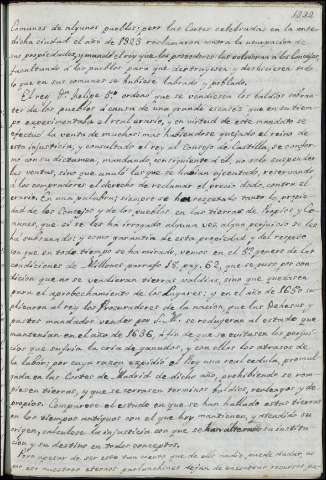 1232
Comunes de algunos pueblos; pero las Cortes celebradas en la ante-
dicha ciudad el año de 1323 reclamaron contra la usurpacion de
sus propiedades, y mandó el rey que los poseedores las volvieran a los Concejos,
facultando a los pueblos para que destruyesen y deshiciesen todo
lo que en sus comunes se hubiese labrado y poblado.
El rey Dn. Felipe 5º ordenó que se vendiesen los baldios sobran-
tes de los pueblos a causa de una grande escasez que en su tiem-
po experimentaba el real erario, y en virtud de este mandato se
efectuó la venta de muchas; mas habiendose quejado el reino de
esta injusticia, y consultado el rey al Consejo de Castilla, se confor-
mó con su dictamen, mandando, consiguiente á él, no solo suspender
las ventas, sino que anuló las que se habian ejecutado, reservando
a los compradores el derecho de reclamar el precio dado, contra el
erario. En una palabra; siempre se ha respetado tanto la propie-
dad de los Concejos y de los pueblos en las tierras de Propios y Co-
munes, que si se les ha irrogado alguna vez algun perjuicio se les
ha subsanado; y como garantia de esta propiedad y del respeto
con que en todo tiempo se ha mirado, vemos en el 5º genero de las
condiciones de Millones, parrafo 18, pag. 62, que se puso por con-
dicion que no se vendieran tierras valdias, sino que quedasen
para el aprobechamiento de los lugares: y en el año de 1650 su-
plicaron al rey los Procuradores de la nacion que las Dehesas y
pastos mandados vender por S. M. se redujeran al estado que
mantenian en el año de 1636, a fin de que se evitasen los perjui-
cios que sufria la cria de ganados, y con ellos los atrasos de
la labor; por cuya razon expidió el Rey una real cedula, promul-
gada en las Cortes de Madrid de dicho año, prohibiendo se rom-
piesen tierras, y que se cerrasen terminos baldios, realengos y de
propios. Comparese el estado en que se han hallado estas tierras
en los tiempos antiguos con el que hoy mantienen, y atendido su
origen, calculese la injusticia con que se han alterado su institu-
cion y su destino en todos conceptos.
Pero apesar de ser esto tan cierto que de ello nadie puede dudar, no
por eso nuestros eternos parlanchines dejan de encontrar recursos, pa-